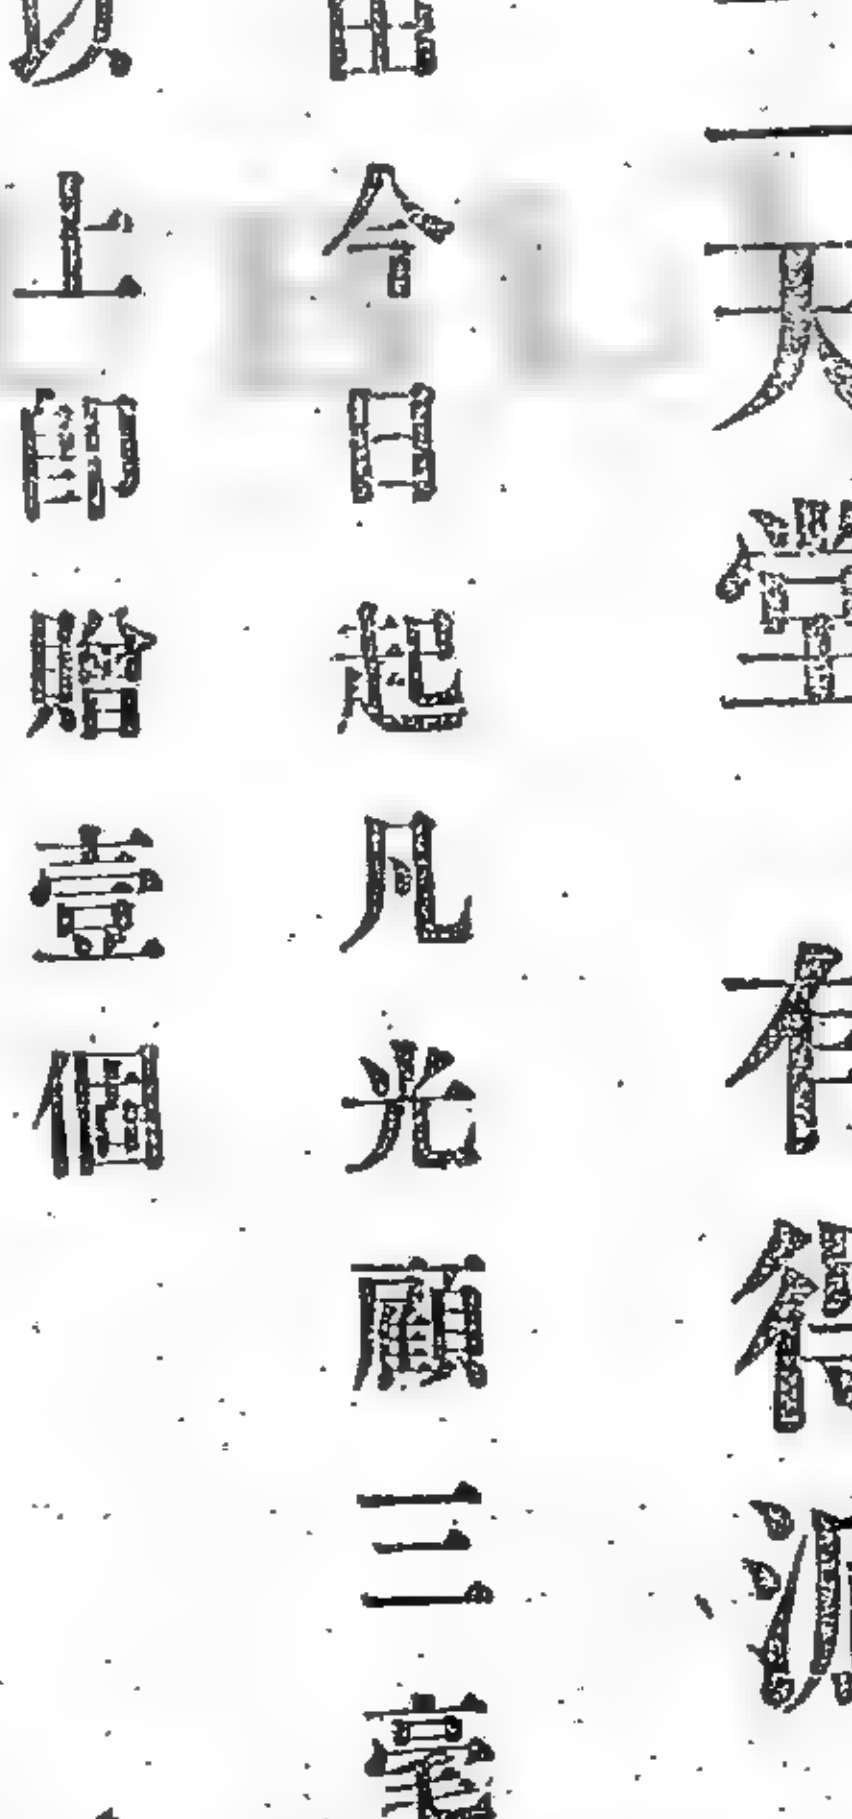 天堂 有得
由今日起凡光顧三毫
以上即贈壹個